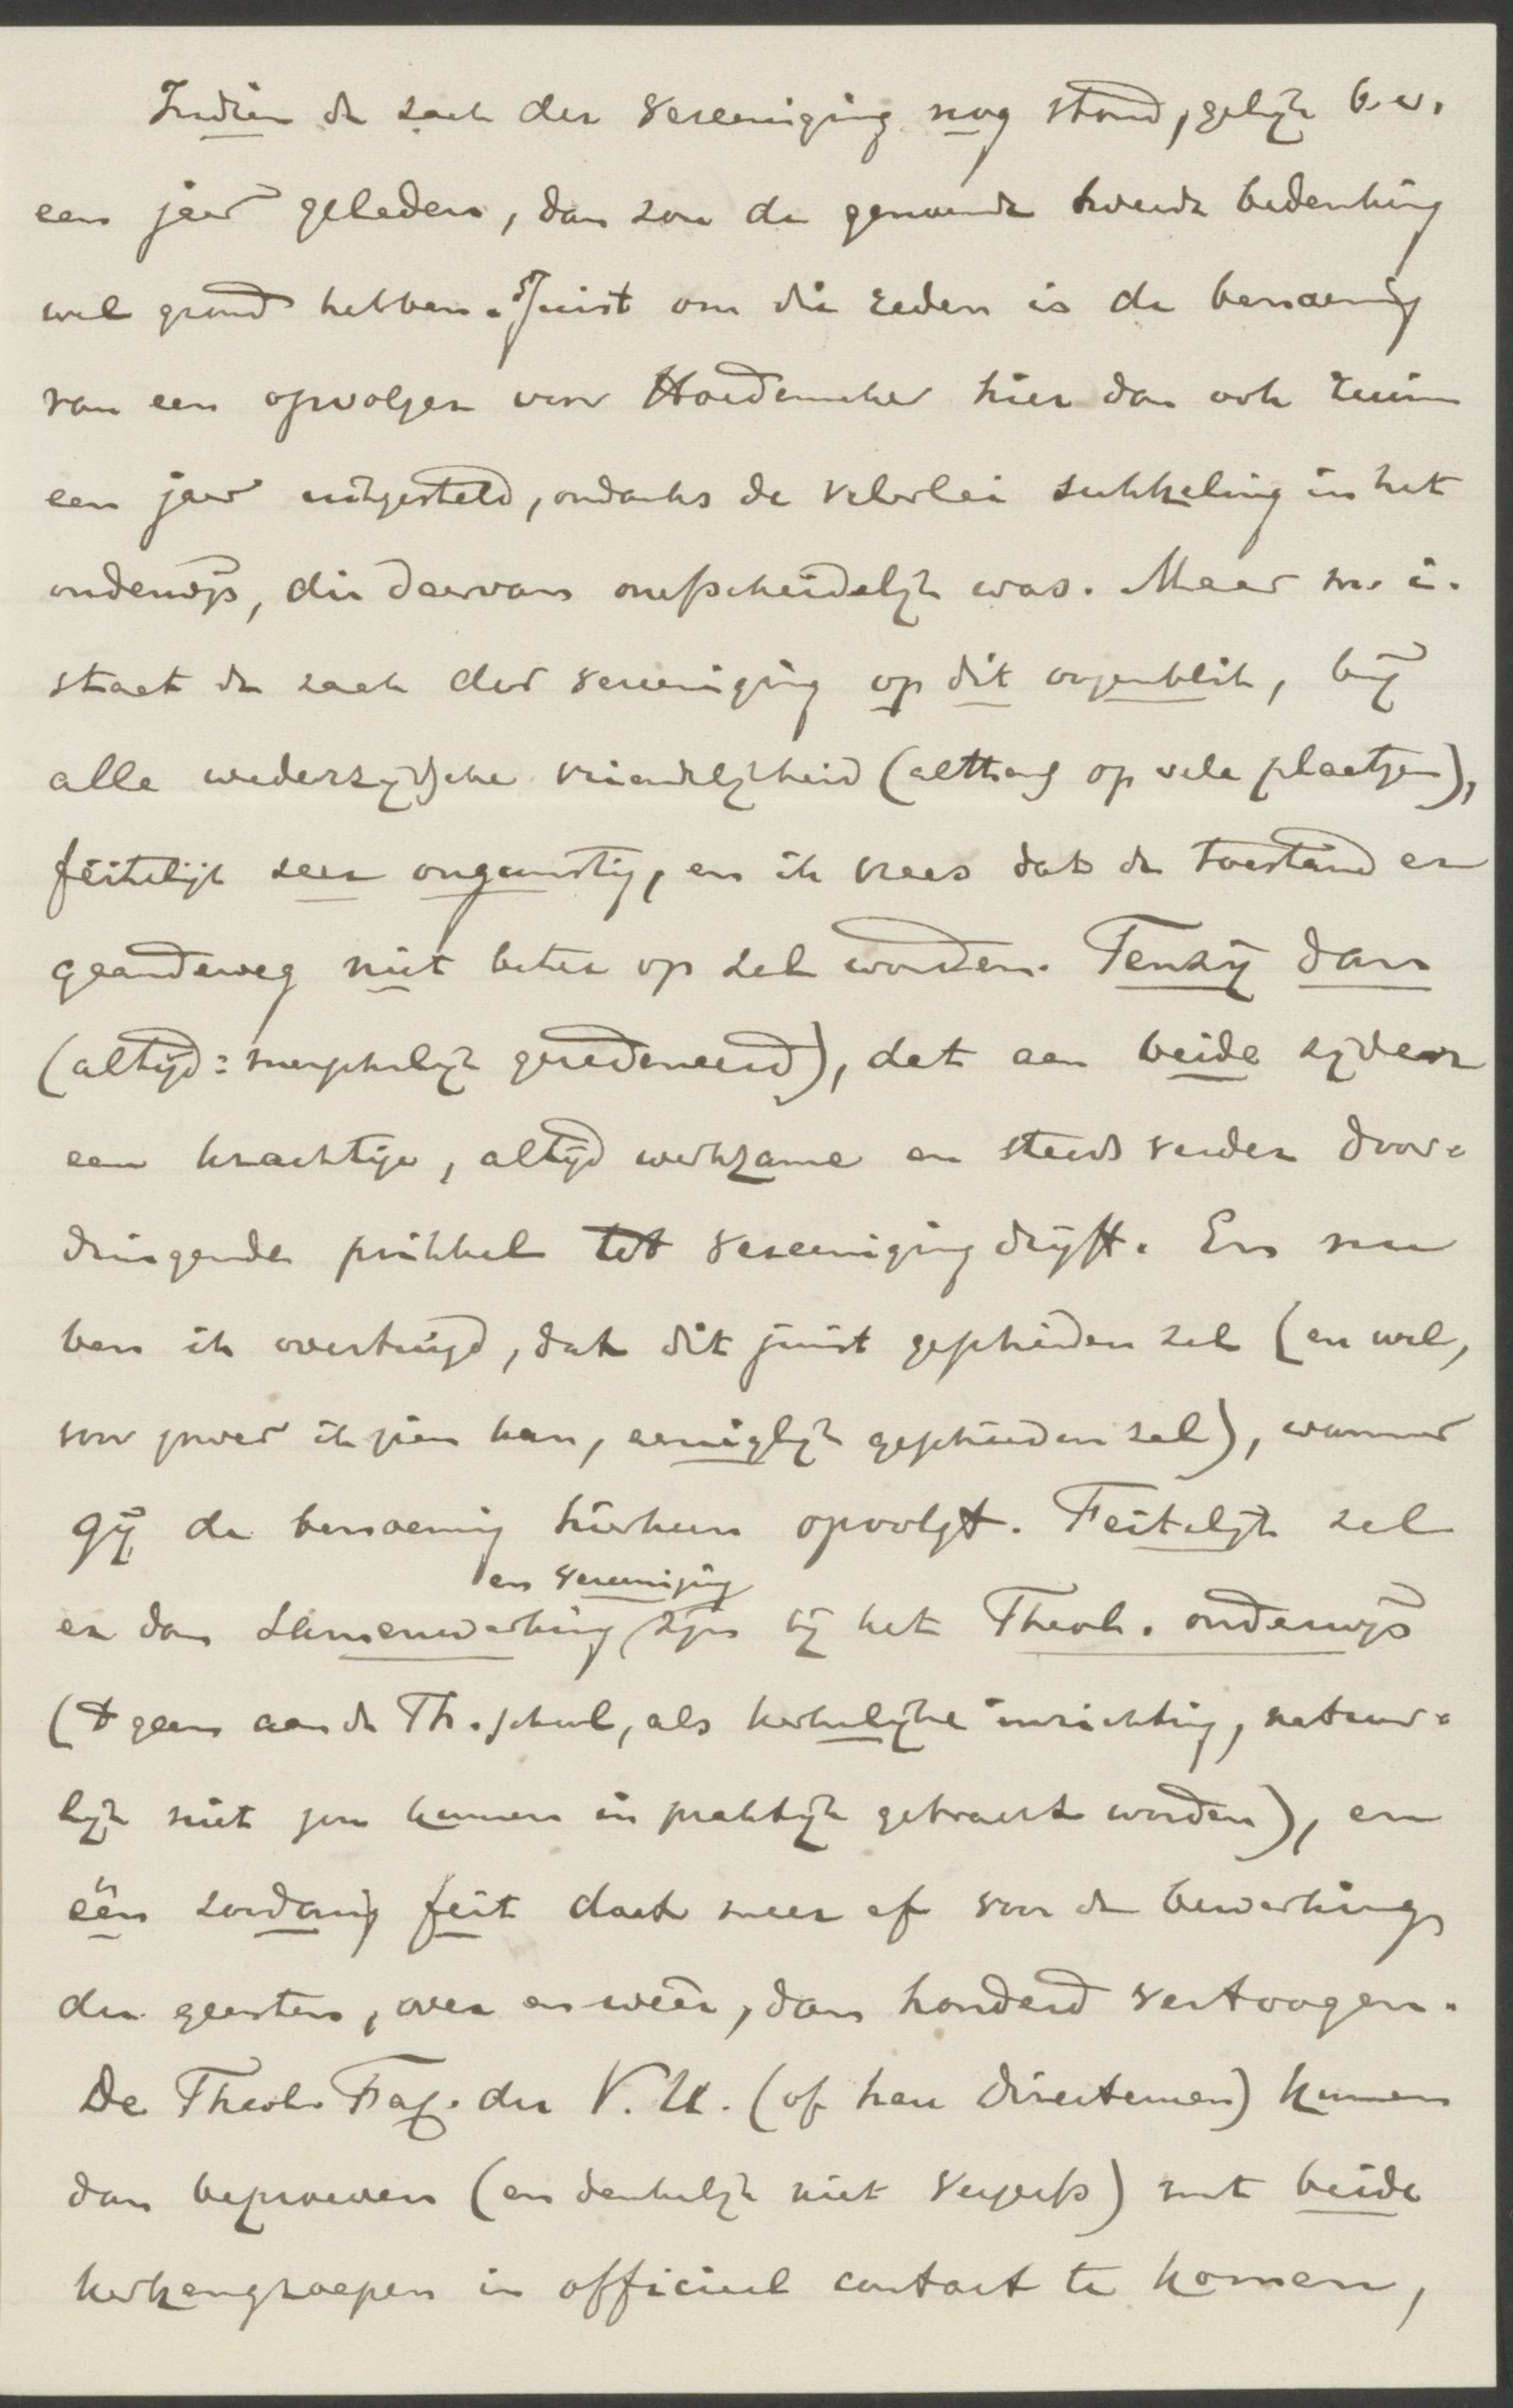 Indien de zaak der vereeniging nog stond, gelijk b.v.
een jaar geleden, dan zou de genoemde tweede bedenking
wel grond hebben. Juist om die reden is de benoeming
van een opvolger voor Hoedemaker hier dan ook ruim
een jaar uitgesteld, ondanks de velerlei sukkeling in het
onderwijs, die daarvan onafscheidelijk was. Maar m. i.
staat de zaak der vereeniging op dit oogenblik, bij
alle wederzijdsche vriendelijkheid (althans op vele plaatsen),
feitelijk zeer ongunstig, en ik vrees dat de toestand er
gaandeweg niet beter op zal worden. Tenzij dan
(altijd: menschelijk geredeneerd), dat aan beide zijden
een krachtige, altijd werkzame en steeds verder door-
dringende prikkel tot vereeniging drijft. En nu
ben ik overtuigd, dat dit juist geschieden zal (en wel,
voor zoover ik zien kan, eeniglijk geschieden zal), wanneer
gij de benoeming hierheen opvolgt. Feitelijk zal
en vereeniging
er dan samenwerking zijn bij het Theol. onderwijs
('t geen aan de Th. School, als kerkelijke inrichting, natuur-
lijk niet zou kunnen in praktijk gebracht worden), en
één zoodanig feit doet meer af voor de bewerking
der geesten, over en weêr, dan honderd vertoogen.
De Theol. Fac. der V. U. (of haar Directeuren) kunnen
dan beproeven (en denkelijk niet vergeefs) met beide
kerkengroepen in officieel contact te komen,